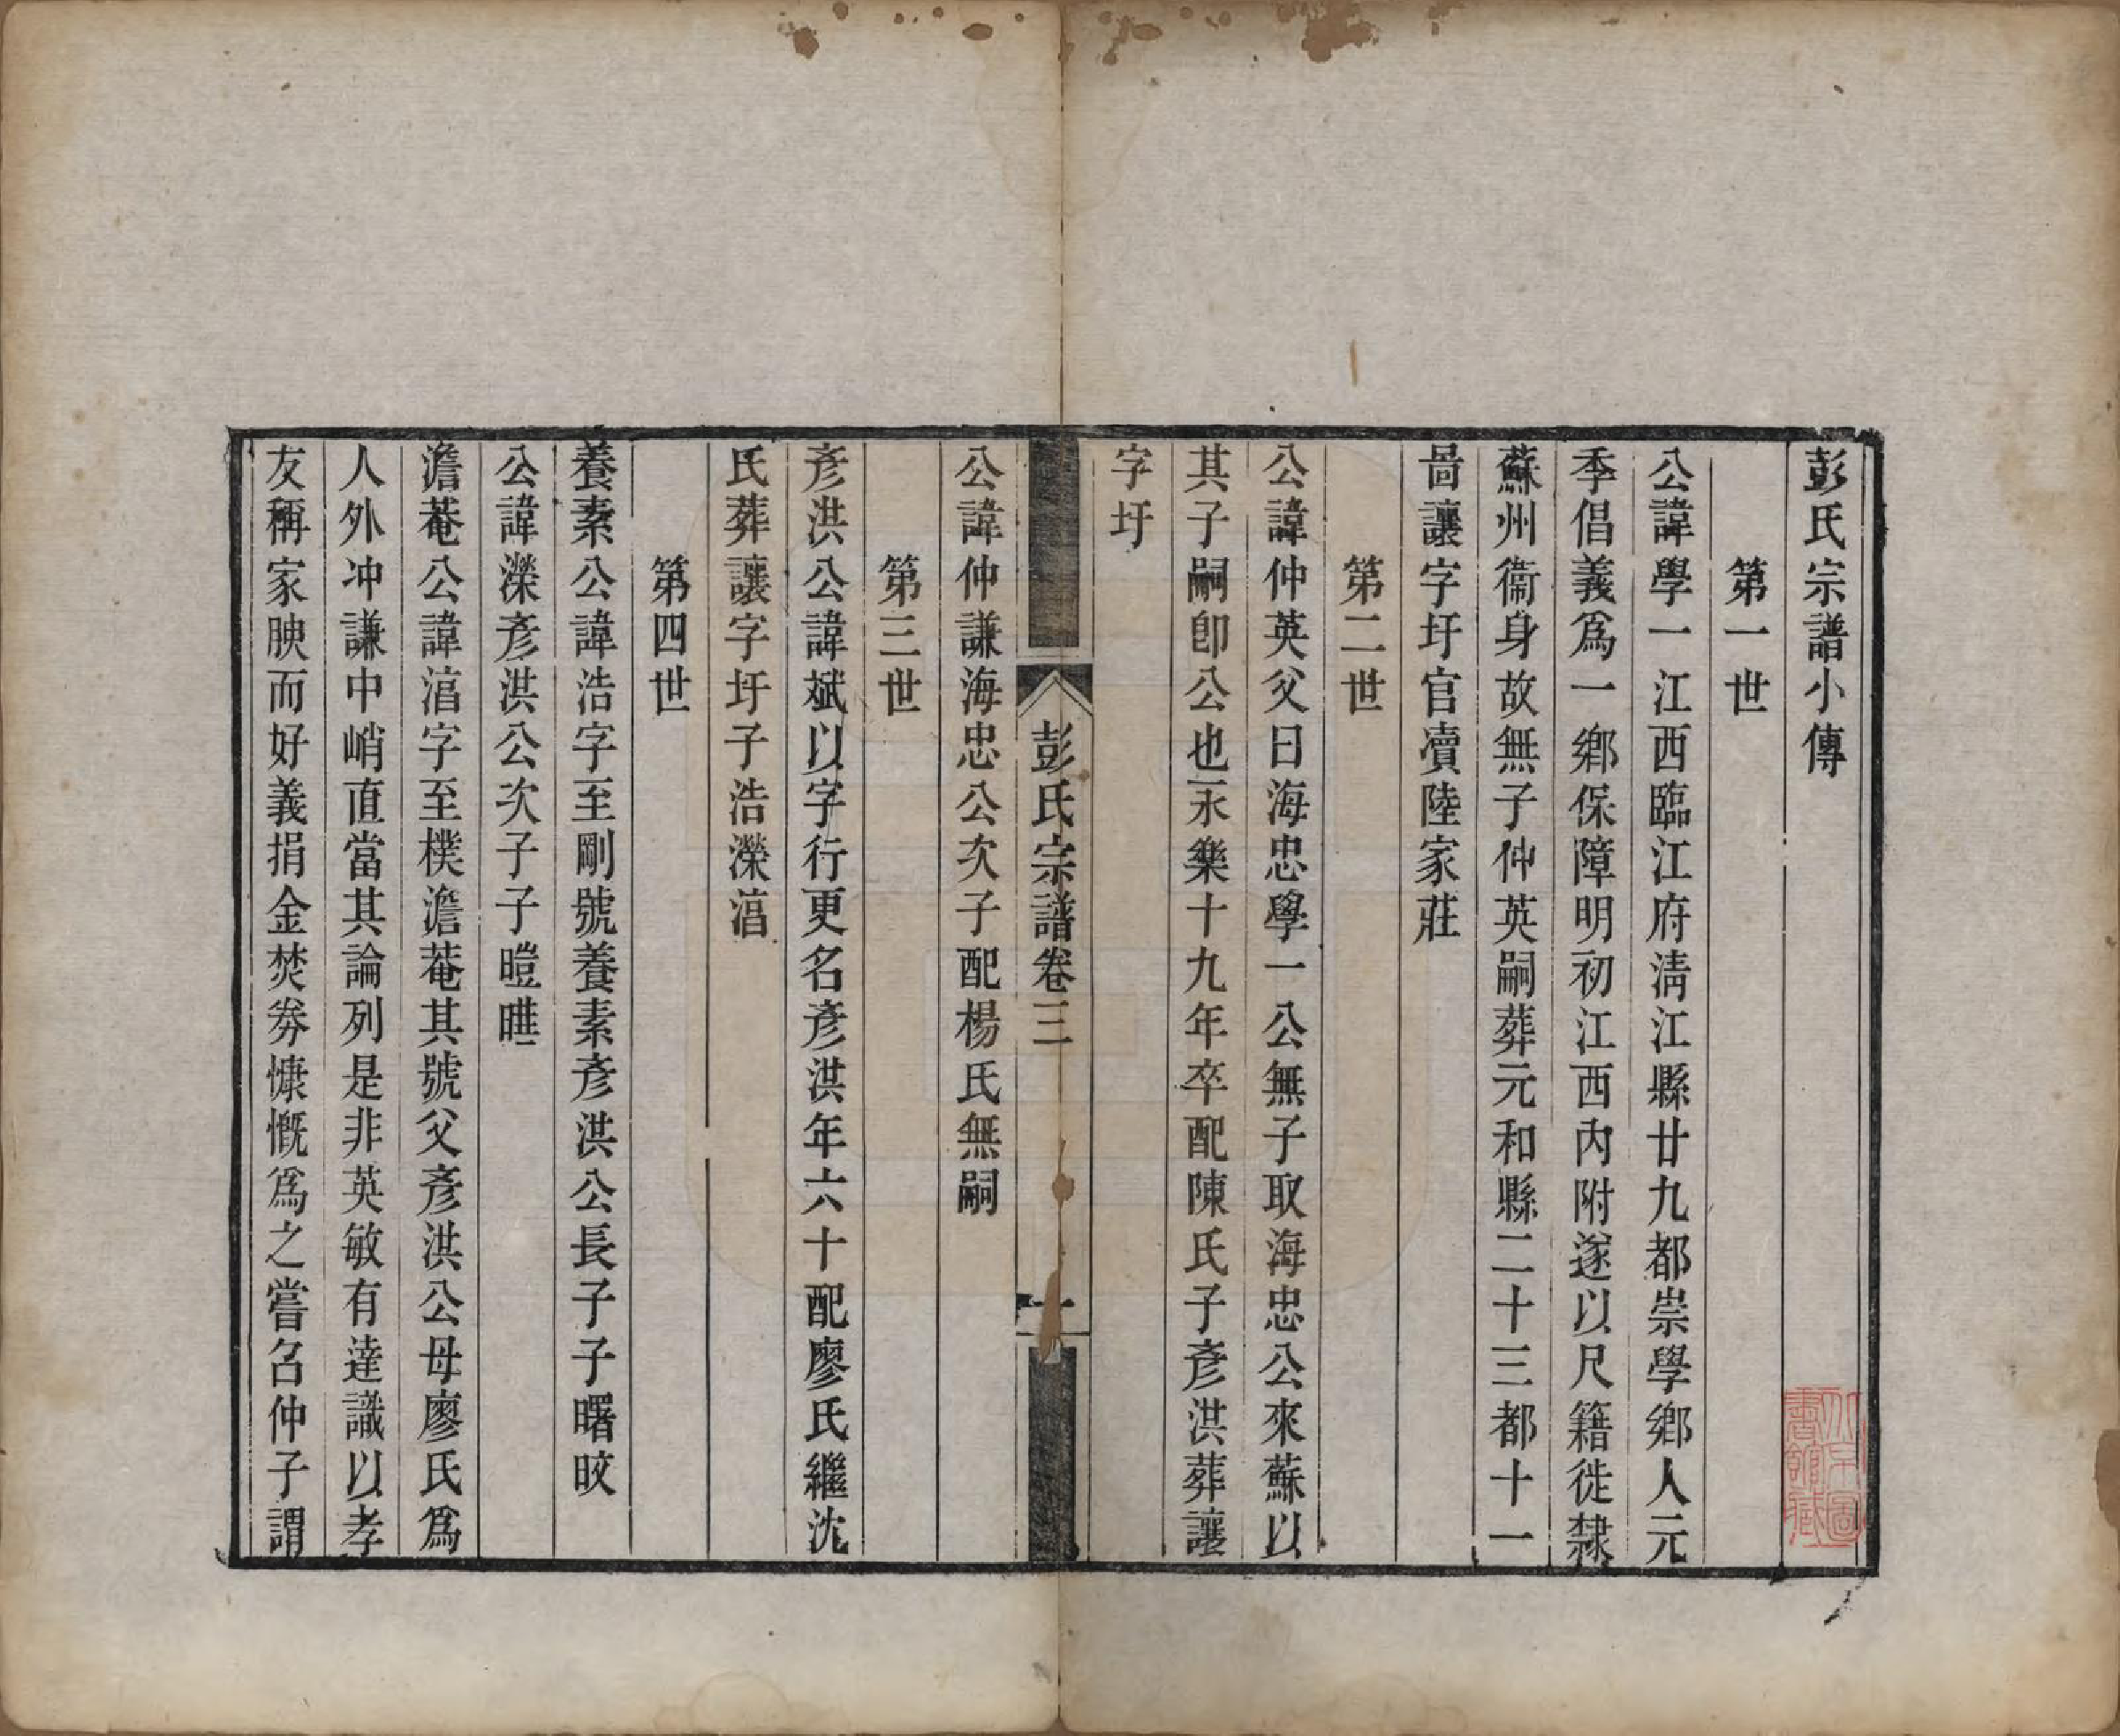 彭氏宗譜小傳
第一世
公諱學一江西臨江府淸江縣廿九都崇學鄉人元
季倡義爲一鄉保障明初江西內附遂以尺籍徙隸
蘇州衞身故無子仲英嗣葬元和縣二十三都十一
啚讓字圩官瀆陸家莊
第二世
公諱仲英父曰海忠學一公無子取海忠公來蘇以
其子嗣卽公也永樂十九年卒配陳氏子彥洪葬讓
字圩
彭氏宗譜卷三
一
公諱仲謙海忠公次子配楊氏無嗣
第三世
彥洪公諱斌以字行更名彥洪年六十配廖氏繼沈
氏葬讓字圩子浩濚淐
第四世
養素公諱浩字至剛號養素彥洪公長子子曙晈
公諱濚彥洪公次子子暟曃
澹菴公諱淐字至樸澹菴其號父彥洪公母廖氏爲
人外冲謙中峭直當其論列是非英敏有達識以孝
友稱家腴而好義捐金焚劵慷慨爲之嘗名仲子謂